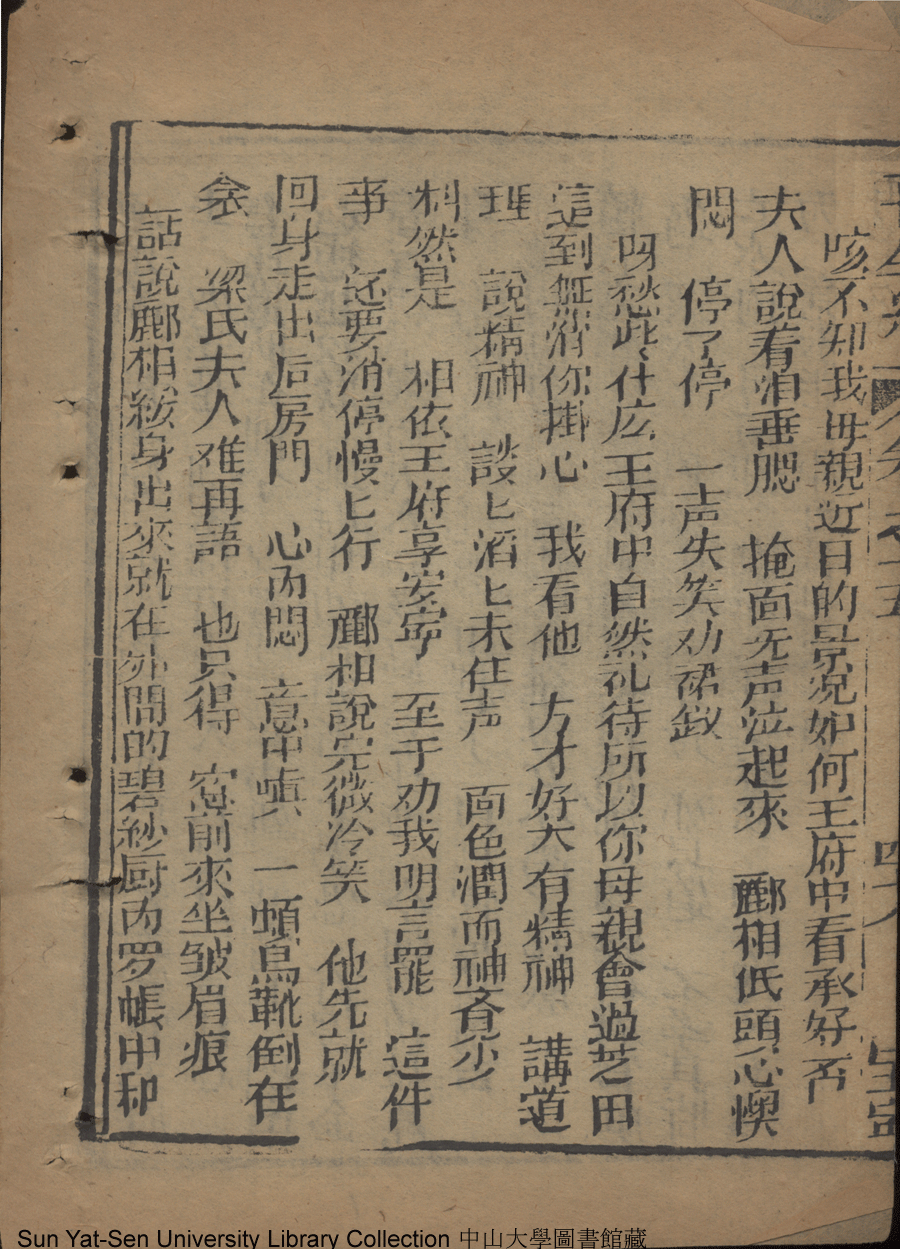 咳不知我母親近日的景況如何王府中看承好否
夫人說着淚垂腮 掩面无声泣起來 酈相低頭心懊
悶 停了停 一声失笑劝裙釵
呀愁此什庅王府中自然礼待所以你母親會過芝田
這到無消你掛心 我看他 方才好大有精神 講道
理 說精神 談匕滔匕未住声 面色潤而神
料然是 相依王府享安寧 至于劝我明言罷 這件
事 还要消停慢匕行 酈相說完微冷笑 他先就
回身走出后房門 心內悶 意中嗔 一頓烏靴倒在
衾 梁氏夫人难再語 也只得 窓前來坐皱眉痕
話說酈相 身出來就在外間的碧紗厨內罗帳中和
Sun Yat-Sen University Library Collection 中山大學圖書館藏